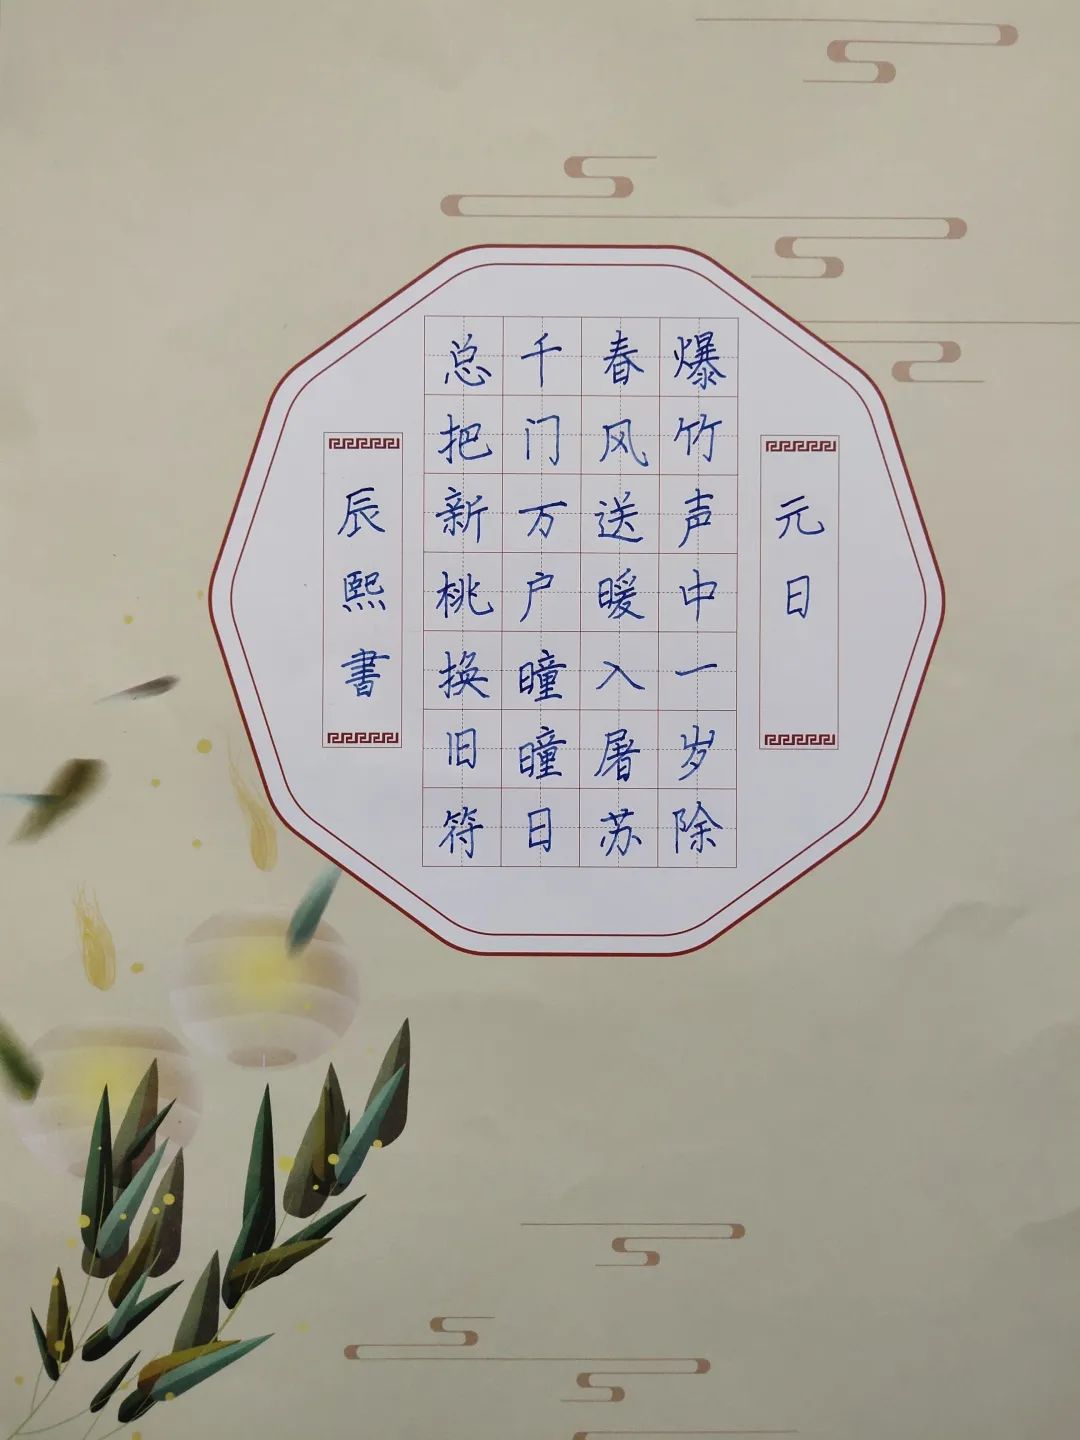 元日
爆竹声中一岁除
春风送暖入屠苏
千门万户瞳瞳日
总把新桃换旧符
辰熙書